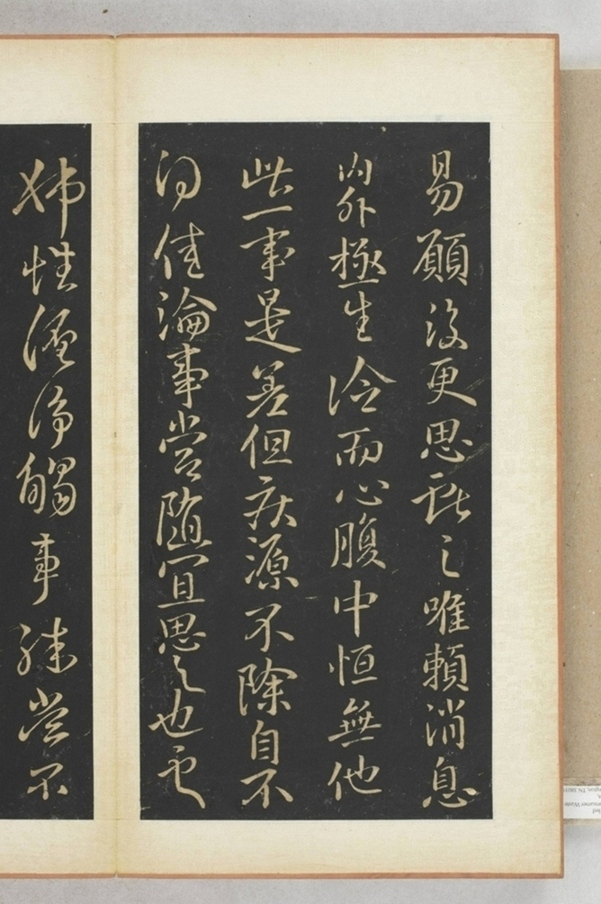 易願復更思之唯賴消息
內外極生冷而心腹中恒無他
此一事是差但疾源不除自不
得佳論事當隨宜思之也
姊性纏綿觸事殊當不